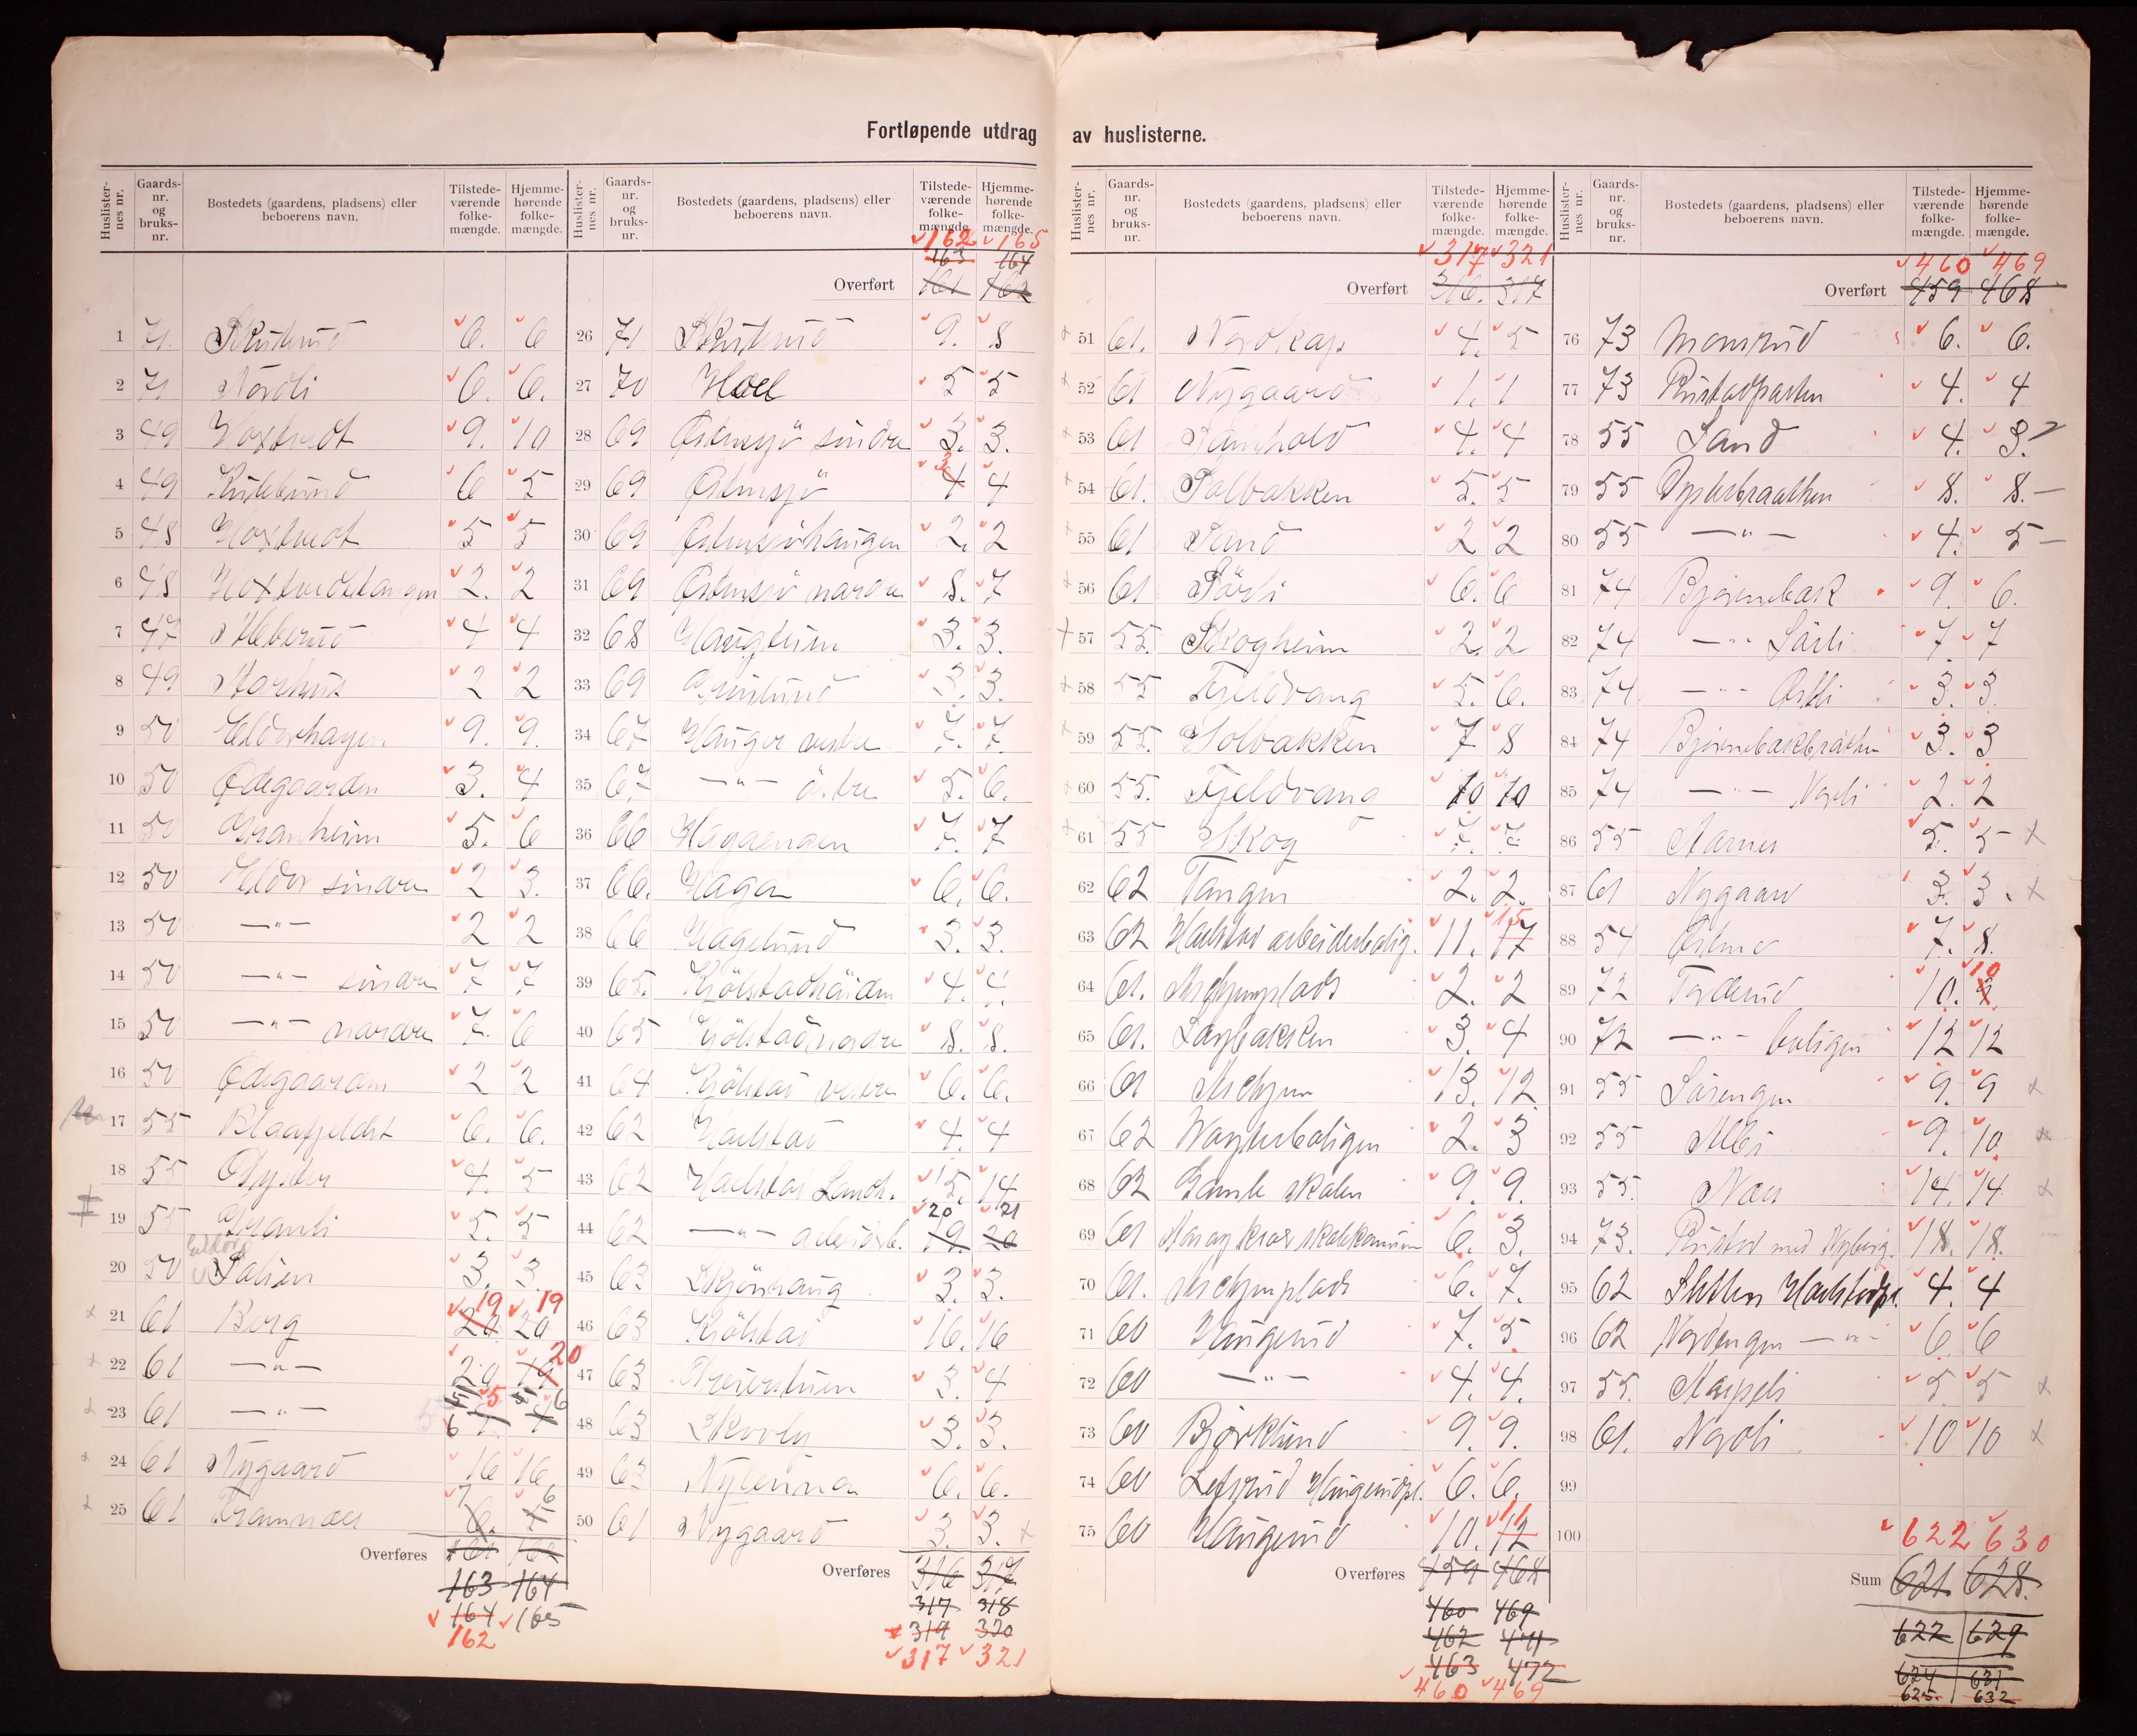 Fortløpende utdrag av huslisterne.
Huslisternes nr.
Gaards-nr. og bruks-nr.
Bostedets (gaardens, pladsens) eller beboerens navn.
Tilstedeværende folkemængde.
Hjemmehørende folkemængde.
1 71. Skuterud 6. 6
2 71 Nordli 6. 6.
3 49 9. 10
4 49 6 5
5 48 5 5
6 48 2. 2
7 47 4 4
8 49 2 2
9 50 Eldorhagen 9. 9.
10 50 Ødegaarden 3. 4
11 50 Granheim 5. 6
12 50 Eldor søndre 2 3.
13 50 —"— 2 2
14 50 —"— søndre 7 7
15 50 —"— nordre 7. 6
16 50 Ødegaarden 2 2
17 55 Blaafjeldet 6. 6.
18 55 Dyster 4. 5
19 55 Granli 5. 5
20 50 3. 3
21 61 Borg 20 20 19 19
22 61 —"— 20 19 20
23 61 —"— 5 6
24 61 Nygaard 16 16
25 61 6. 5 7 6
Overføres 161 162
163 164
164 165
162
Overført 161 162
163 164
162 165
26 71 Skuterud 9. 8
27 70 Hoel 5 5
28 69 Østensjø søndre 3. 3.
29 69 Østensjø 4 4 3
30 69 Østensjøhaugen 2. 2
31 69 Østensjø nordre 8. 7
32 68 Haugtun 3. 3.
33 69 Grønlund 3. 3.
34 67 Hauger vestre 7. 7.
35 67 —"— østre 5. 6.
36 66 Hagaengen 7. 7
37 66. Haga 6. 6.
38 66 Hagelund 3. 3.
39 65. 4. 4.
40 65 Kjølstad nordre 8. 8.
41 64 Kjølstad vestre 6. 6.
42 62 Holstad 4. 4
43 62 Holstad Landh. 15. 14
44 62 —"— arbeiderb. 19. 20 20 21
45 63 Skjønhaug 3. 3.
46 63 Kjølstad 16. 16
47 63 3. 4
48 63 Skovly 3. 3.
49 63 6. 6.
50 61 Nygaard 3. 3.
Overføres 316 317
317 318
319 320
317 321
Overført 316. 317
317 321
51 61. Nordkap 4. 5
52 61 Nygaard 1. 1
53 61 4. 4
54 61. Solbakken 5. 5
55 61 2 2
56 61 Sørli 6. 6
57 55. Skogheim 2. 2
58 55 Fjeldvang 5. 6.
59 55. Solbakken 7 8
60 55. Fjeldvang 10 10
61 55 Skog 7. 7.
62 62 Tangen 2. 2.
63 62 Holstad arbeiderbolig. 11. 17 15
64 61. 2. 2
65 61. 3. 4
66 61 13. 12
67 62 2. 3
68 62 Gamle skolen 9. 9.
69 61 6. 3.
70 61. 6. 7.
71 60 Haugerud 7. 5.
72 60 —"— 4. 4.
73 60 Bjørklund 9. 9.
74 60 6. 6.
75 60 Haugerud 10. 12 11
Overføres 459 468
460 469
462 471
463 472
460 469
Overført 459 468
460 469
76 73 Monsrud 6. 6.
77 73 4. 4
78 55 Sand 4. 3.
79 55 Dysterbraathen 8. 8. —
80 55 —"— 4. 5 —
81 74 Bjørnebæk 9. 6.
82 74 —"— Sørli 7. 7
83 74 —"— Østli 3. 3.
84 74 3. 3
85 74 —"— Nordli 2. 2
86 55 Aarnes 5. 5
87 61 Nygaard 3. 3.
88 54 7. 8.
89 72 Torderud 10. 9 10
90 72 —"— boligen 12 12
91 55 Sørengen 9. 9
92 55 9. 10.
93 55. Næs 14. 14
94 73. Rustad med Nyberg. 18. 18.
95 62 Sletten Holstadpl. 4. 4
96 62 Nordengen —"— 6. 6
97 55. 5. 5
98 61. Nordli 10 10
99
100
622 630
Sum 621. 628.
622 629
624 631
625 632